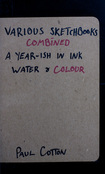 VARIOUS SKETCHBOOKS
COMBINED
A YEAR-ISH IN INK
WATER & COLOUR
PAUL COTTON